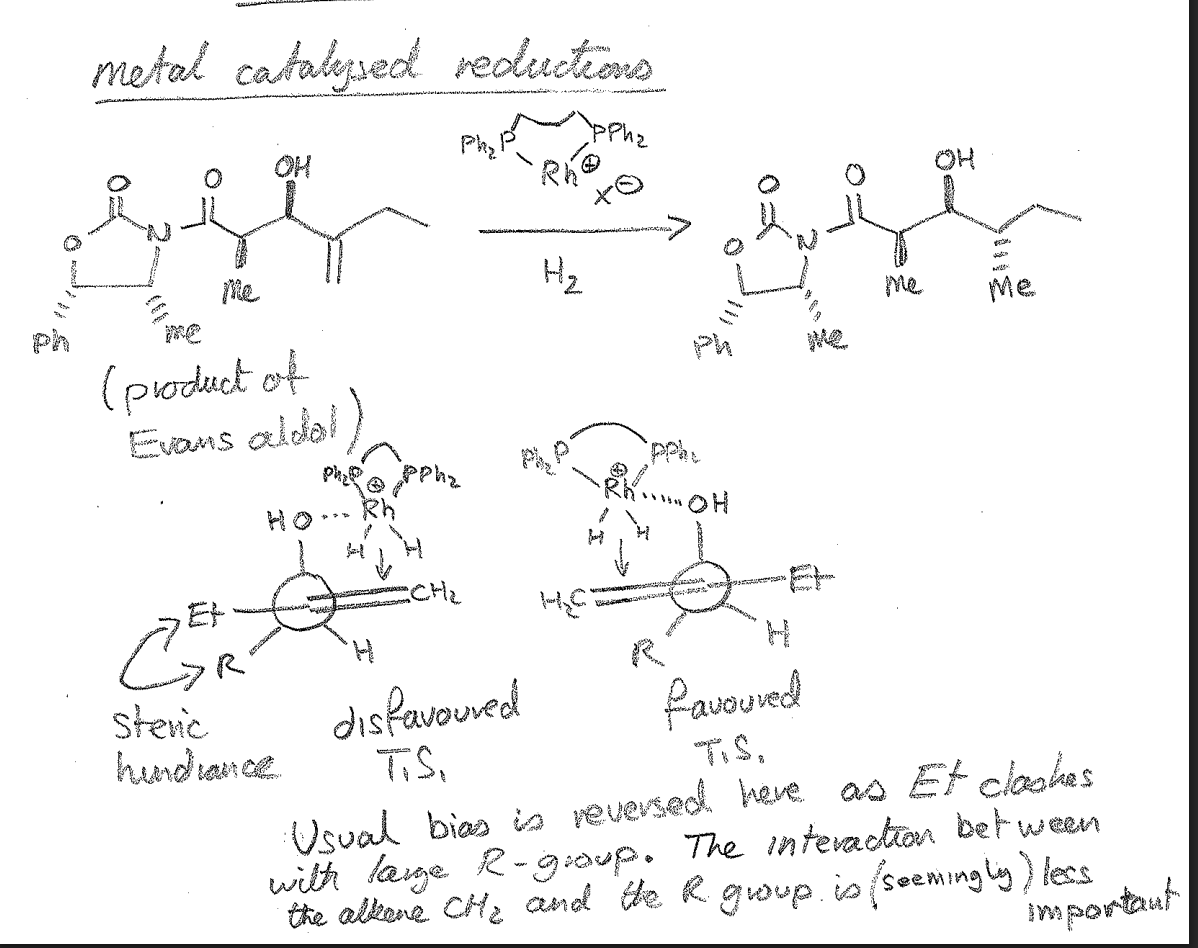 metal catalysed reductions
Ph₂P PPh₂
Rh⊕
X⊖
O O OH
O N
Me
Ph Me
H₂
O O OH
O N
Me Me
Ph Me
(product of
Evans aldol)
Ph₂P PPh₂
⊕
Rh
HO
H H
Et CH₂
R H
Ph₂P PPh₂
⊕
Rh OH
H H
H₂C Et
R H
Steric
hindrance
disfavoured
T.S.
favoured
T.S.
Usual bias is reversed here as Et clashes
with large R-group. The interaction between
the alkene CH₂ and the R group is (seemingly) less
important